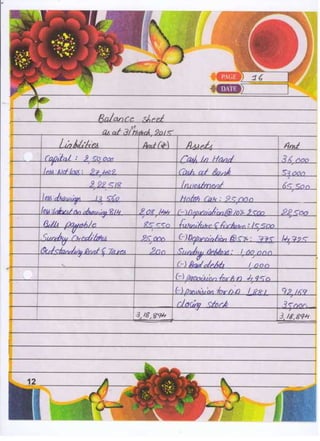 PAGE 16
DATE
Balance sheet
as at 31st March, 2015
Liabilities Amt (₹) Assets Amt
Capital : 2,50,000 Cash In Hand 36,000
less Net loss : 27,482 Cash at Bank 53,000
2,22,518 Investment 65,500
less drawings 13,560 Motor Car : 25,000
less Interest on drawing 814 2,08,144 (-) Depreciation @ 10% 2500 22,500
Bills payable 85,550 furniture & fixture : 15,500
Sundry Creditors 25,000 (-) Depreciation @ 5% : 775 14,725
Outstanding Rent & Taxes 200 Sundry Debtors : 1,00,000
(-) Bad debts 1,000
(-) provision for B.D 4,950
(-) provision for D.D 1,881 92,169
closing stock 35,000
3,18,894 3,18,894
12